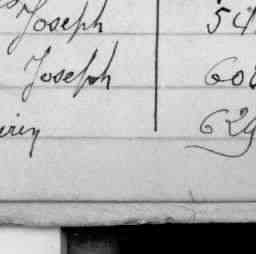 Joseph 54
Joseph 608
629